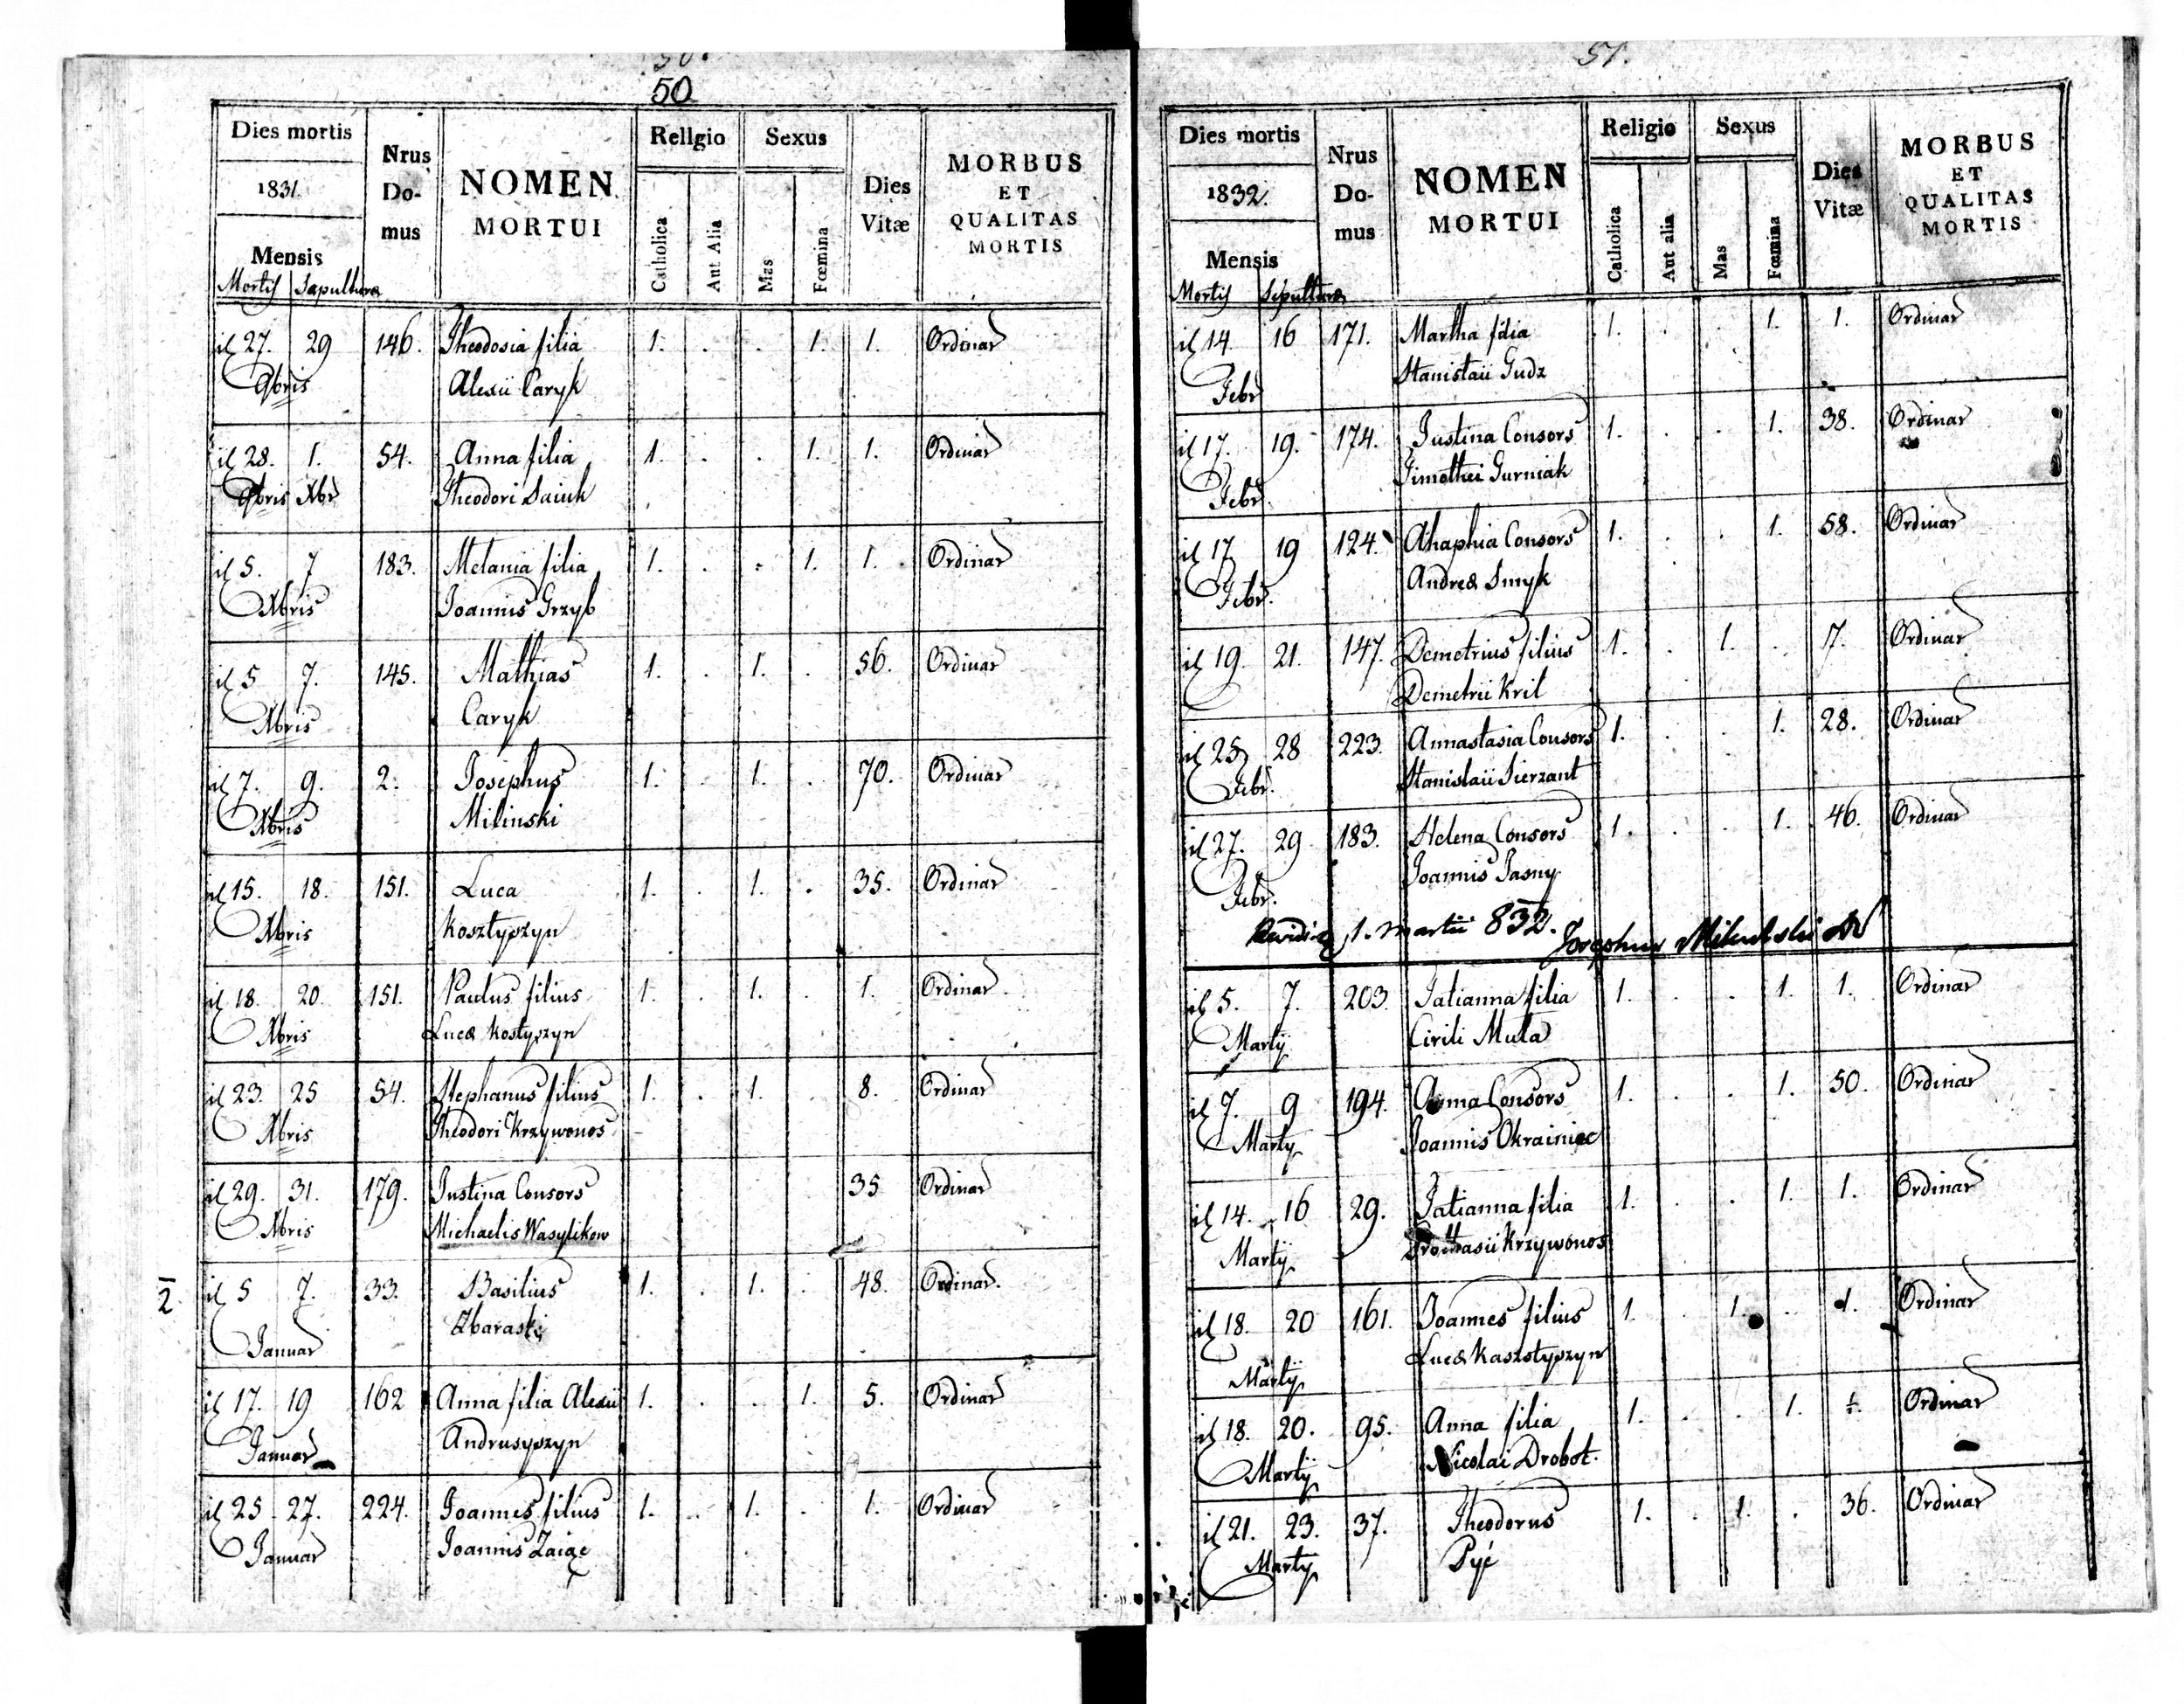 50
Dies mortis
1831.
Mensis
Mortis Sepulturæ
Nrus
Do-
mus
NOMEN
MORTUI
Religio
Catholica
Aut Alia
Sexus
Mas
Fœmina
Dies
Vitæ
MORBUS
ET
QUALITAS
MORTIS
27. 29 146. Theodosia filia 1. . . 1. 1. Ordinar
9bris Alexii Caryk
28. 1. 54. Anna filia 1. . . 1. 1. Ordinar
9bris Xbr Theodori Saiuk
5. 7 183. Melania filia 1. . . 1. 1. Ordinar
Xbris Joannis Grzyb
5 7. 145. Mathias 1. . 1. . 56. Ordinar
Xbris Caryk
7. 9. 2. Josephus 1. . 1. . 70. Ordinar
Xbris Milinski
15. 18. 151. Luca 1. . 1. . 35. Ordinar
Xbris Kosztyszyn
18. 20. 151. Paulus filius 1. . 1. . 1. Ordinar
Xbris Lucæ Kostyszyn
23. 25 54. Stephanus filius 1. . 1. . 8. Ordinar
Xbris Theodori Krzywonos
29. 31. 179. Justina Consors 35 Ordinar
Xbris Michaelis Wasylikow
2
5 7. 33. Basilius 1. . 1. . 48. Ordinar.
Januar Zbaraski
17. 19 162 Anna filia Alexii 1. . . 1. 5. Ordinar
Januar Andrusyszyn
25 27. 224. Joannes filius 1. . 1. . 1. Ordinar
Januar Joannis Zaiąc
51.
Dies mortis
1832.
Mensis
Mortis Sepulturæ
Nrus
Do-
mus
NOMEN
MORTUI
Religio
Catholica
Aut alia
Sexus
Mas
Fœmina
Dies
Vitæ
MORBUS
ET
QUALITAS
MORTIS
14. 16 171. Martha filia 1. . . 1. 1. Ordinar
Febr Stanislaii Gudz
17. 19. 174. Justina Consors 1. . . 1. 38. Ordinar
Febr. Timothei Gurniak
17 19 124. Ahaphia Consors 1. . . 1. 58. Ordinar
Febr. Andreæ Smyk
19. 21. 147. Demetrius filius 1. . 1. . 7. Ordinar
Demetrii Kril
25 28 223. Annastasia Consors 1. . . 1. 28. Ordinar
Febr. Stanislaii Sierzant
27. 29 183. Helena Consors 1. . . 1. 46. Ordinar
Febr. Joannis Jasny
1. Martii 832. Josephus
5. 7. 203. Tatianna filia 1. . . 1. 1. Ordinar
Martij Cirili Muła
7. 9 194. Anna Consors 1. . . 1. 50. Ordinar
Martij Joannis Okrainiec
14. 16 29. Tatianna filia 1. . . 1. 1. Ordinar
Martij Krzywonos
18. 20 161. Joannes filius 1. . 1. . 1. Ordinar
Martij Lucæ Kaszstyszyn
18. 20. 95. Anna filia 1. . . 1. Ordinar
Martij Nicolai Drobot.
21. 23. 37. Theodorus 1. . 1. . 36. Ordinar
Martij Pyć